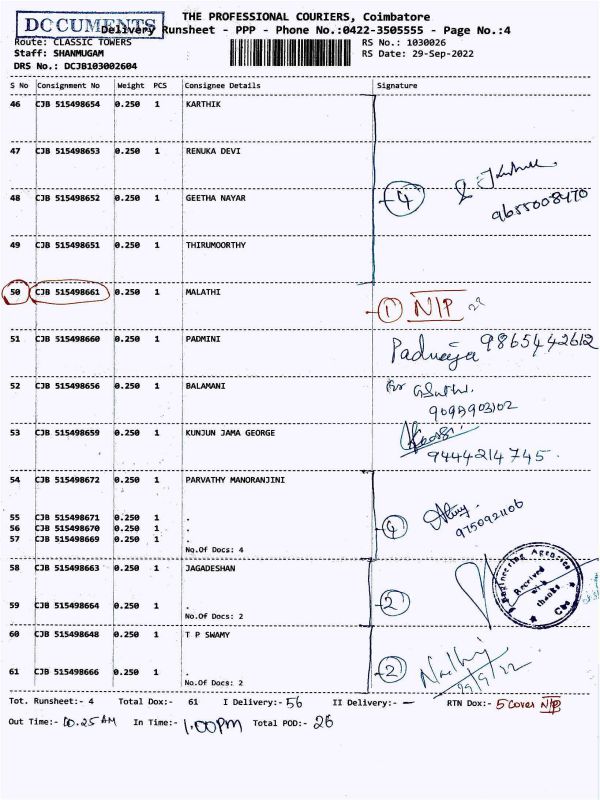 DOCUMENTS
THE PROFESSIONAL COURIERS, Coimbatore
Delivery Runsheet - PPP - Phone No.:0422-3505555 - Page No.:4
Route: CLASSIC TOWERS RS No.: 1030026
Staff: SHANMUGAM RS Date: 29-Sep-2022
DRS No.: DCJB103002604
S No Consignment No Weight PCS Consignee Details Signature
46 CJB 515498654 0.250 1 KARTHIK
47 CJB 515498653 0.250 1 RENUKA DEVI
48 CJB 515498652 0.250 1 GEETHA NAYAR 4
9655008470
49 CJB 515498651 0.250 1 THIRUMOORTHY
50 CJB 515498661 0.250 1 MALATHI 1 N/P
51 CJB 515498660 0.250 1 PADMINI 9865442612
52 CJB 515498656 0.250 1 BALAMANI
53 CJB 515498659 0.250 1 KUNJUN JAMA GEORGE
9444214745.
54 CJB 515498672 0.250 1 PARVATHY MANORANJINI
55 CJB 515498671 0.250 1 .
56 CJB 515498670 0.250 1 .
57 CJB 515498669 0.250 1 .
No.Of Docs: 4
58 CJB 515498663 0.250 1 JAGADESHAN
Engineering Agencies
Received with thanks
Cbe
59 CJB 515498664 0.250 1 . 2
No.Of Docs: 2
60 CJB 515498648 0.250 1 T P SWAMY
61 CJB 515498666 0.250 1 . 2
29/9/22
No.Of Docs: 2
Tot. Runsheet:- 4 Total Dox:- 61 I Delivery:- 56 II Delivery:- — RTN Dox:- 5 Cover N/P
Out Time:- 10.25 AM In Time:- 1.00PM Total POD:- 26